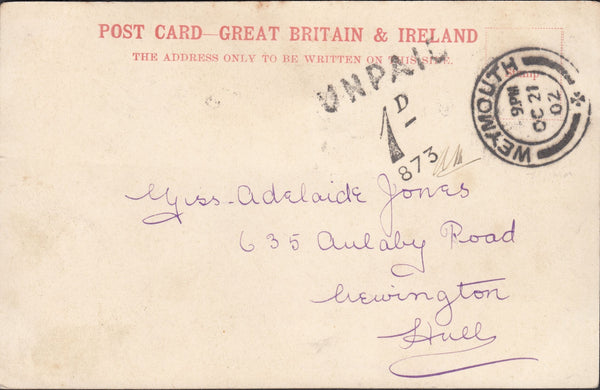 POST CARD—GREAT BRITAIN & IRELAND
THE ADDRESS ONLY TO BE WRITTEN ON THIS SIDE.
UNPAID
1D
873
WEYMOUTH
9 PM
OC 21
02
Miss Adelaide Jones
635 Anlaby Road
Newington
Hull